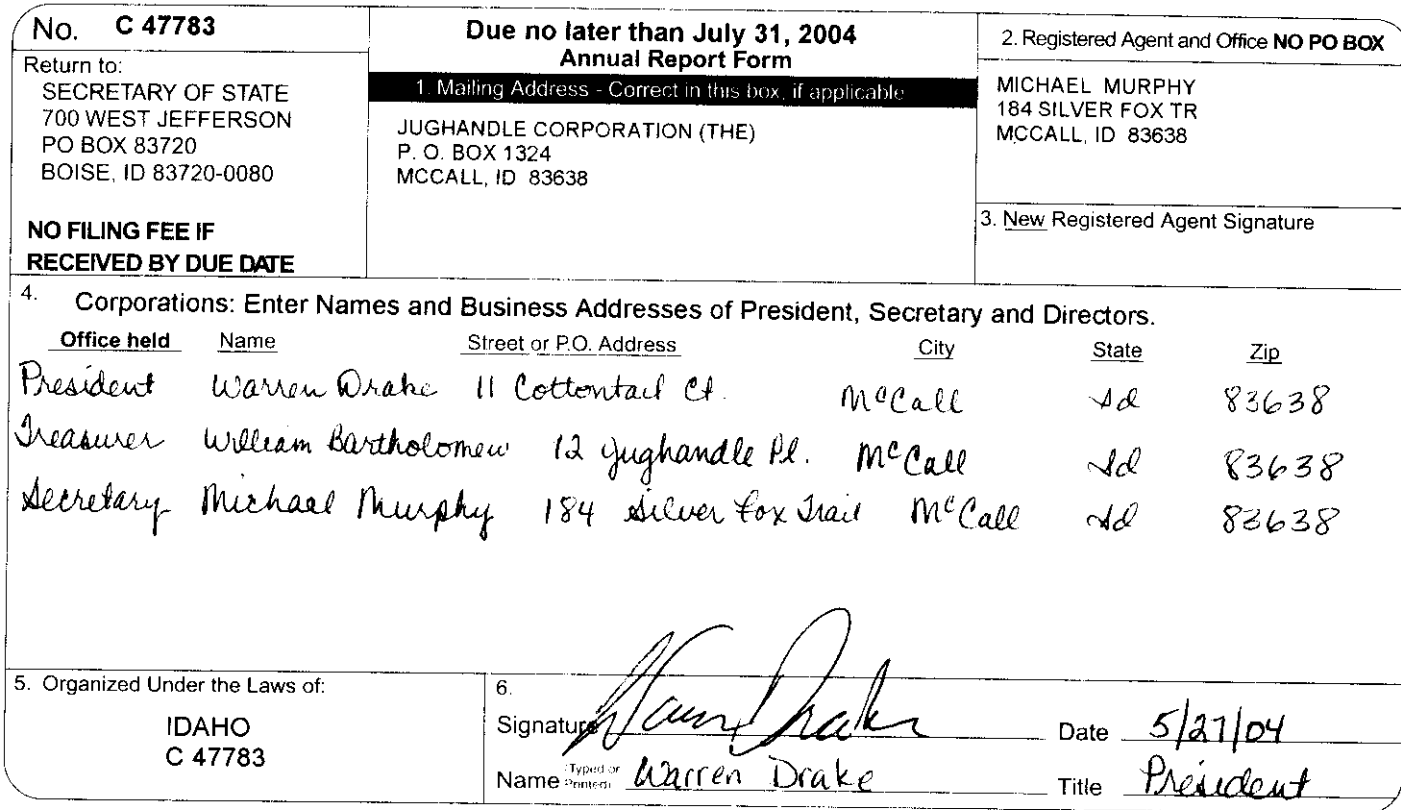 No. C 47783
Return to:
SECRETARY OF STATE
700 WEST JEFFERSON
PO BOX 83720
BOISE, ID 83720-0080
NO FILING FEE IF
RECEIVED BY DUE DATE
Due no later than July 31, 2004
Annual Report Form
1. Mailing Address - Correct in this box, if applicable
JUGHANDLE CORPORATION (THE)
P. O. BOX 1324
MCCALL, ID 83638
2. Registered Agent and Office NO PO BOX
MICHAEL MURPHY
184 SILVER FOX TR
MCCALL, ID 83638
3. New Registered Agent Signature
4. Corporations: Enter Names and Business Addresses of President, Secretary and Directors.
Office held Name Street or P.O. Address City State Zip
President Warren Drake 11 Cottontail Ct. McCall Id 83638
Treasurer William Bartholomew 12 Jughandle Pl. McCall Id 83638
Secretary Michael Murphy 184 Silver Fox Trail McCall Id 83638
5. Organized Under the Laws of:
IDAHO
C 47783
6.
Signature Warren Drake Date 5/27/04
Name (Typed or Printed) Warren Drake Title President